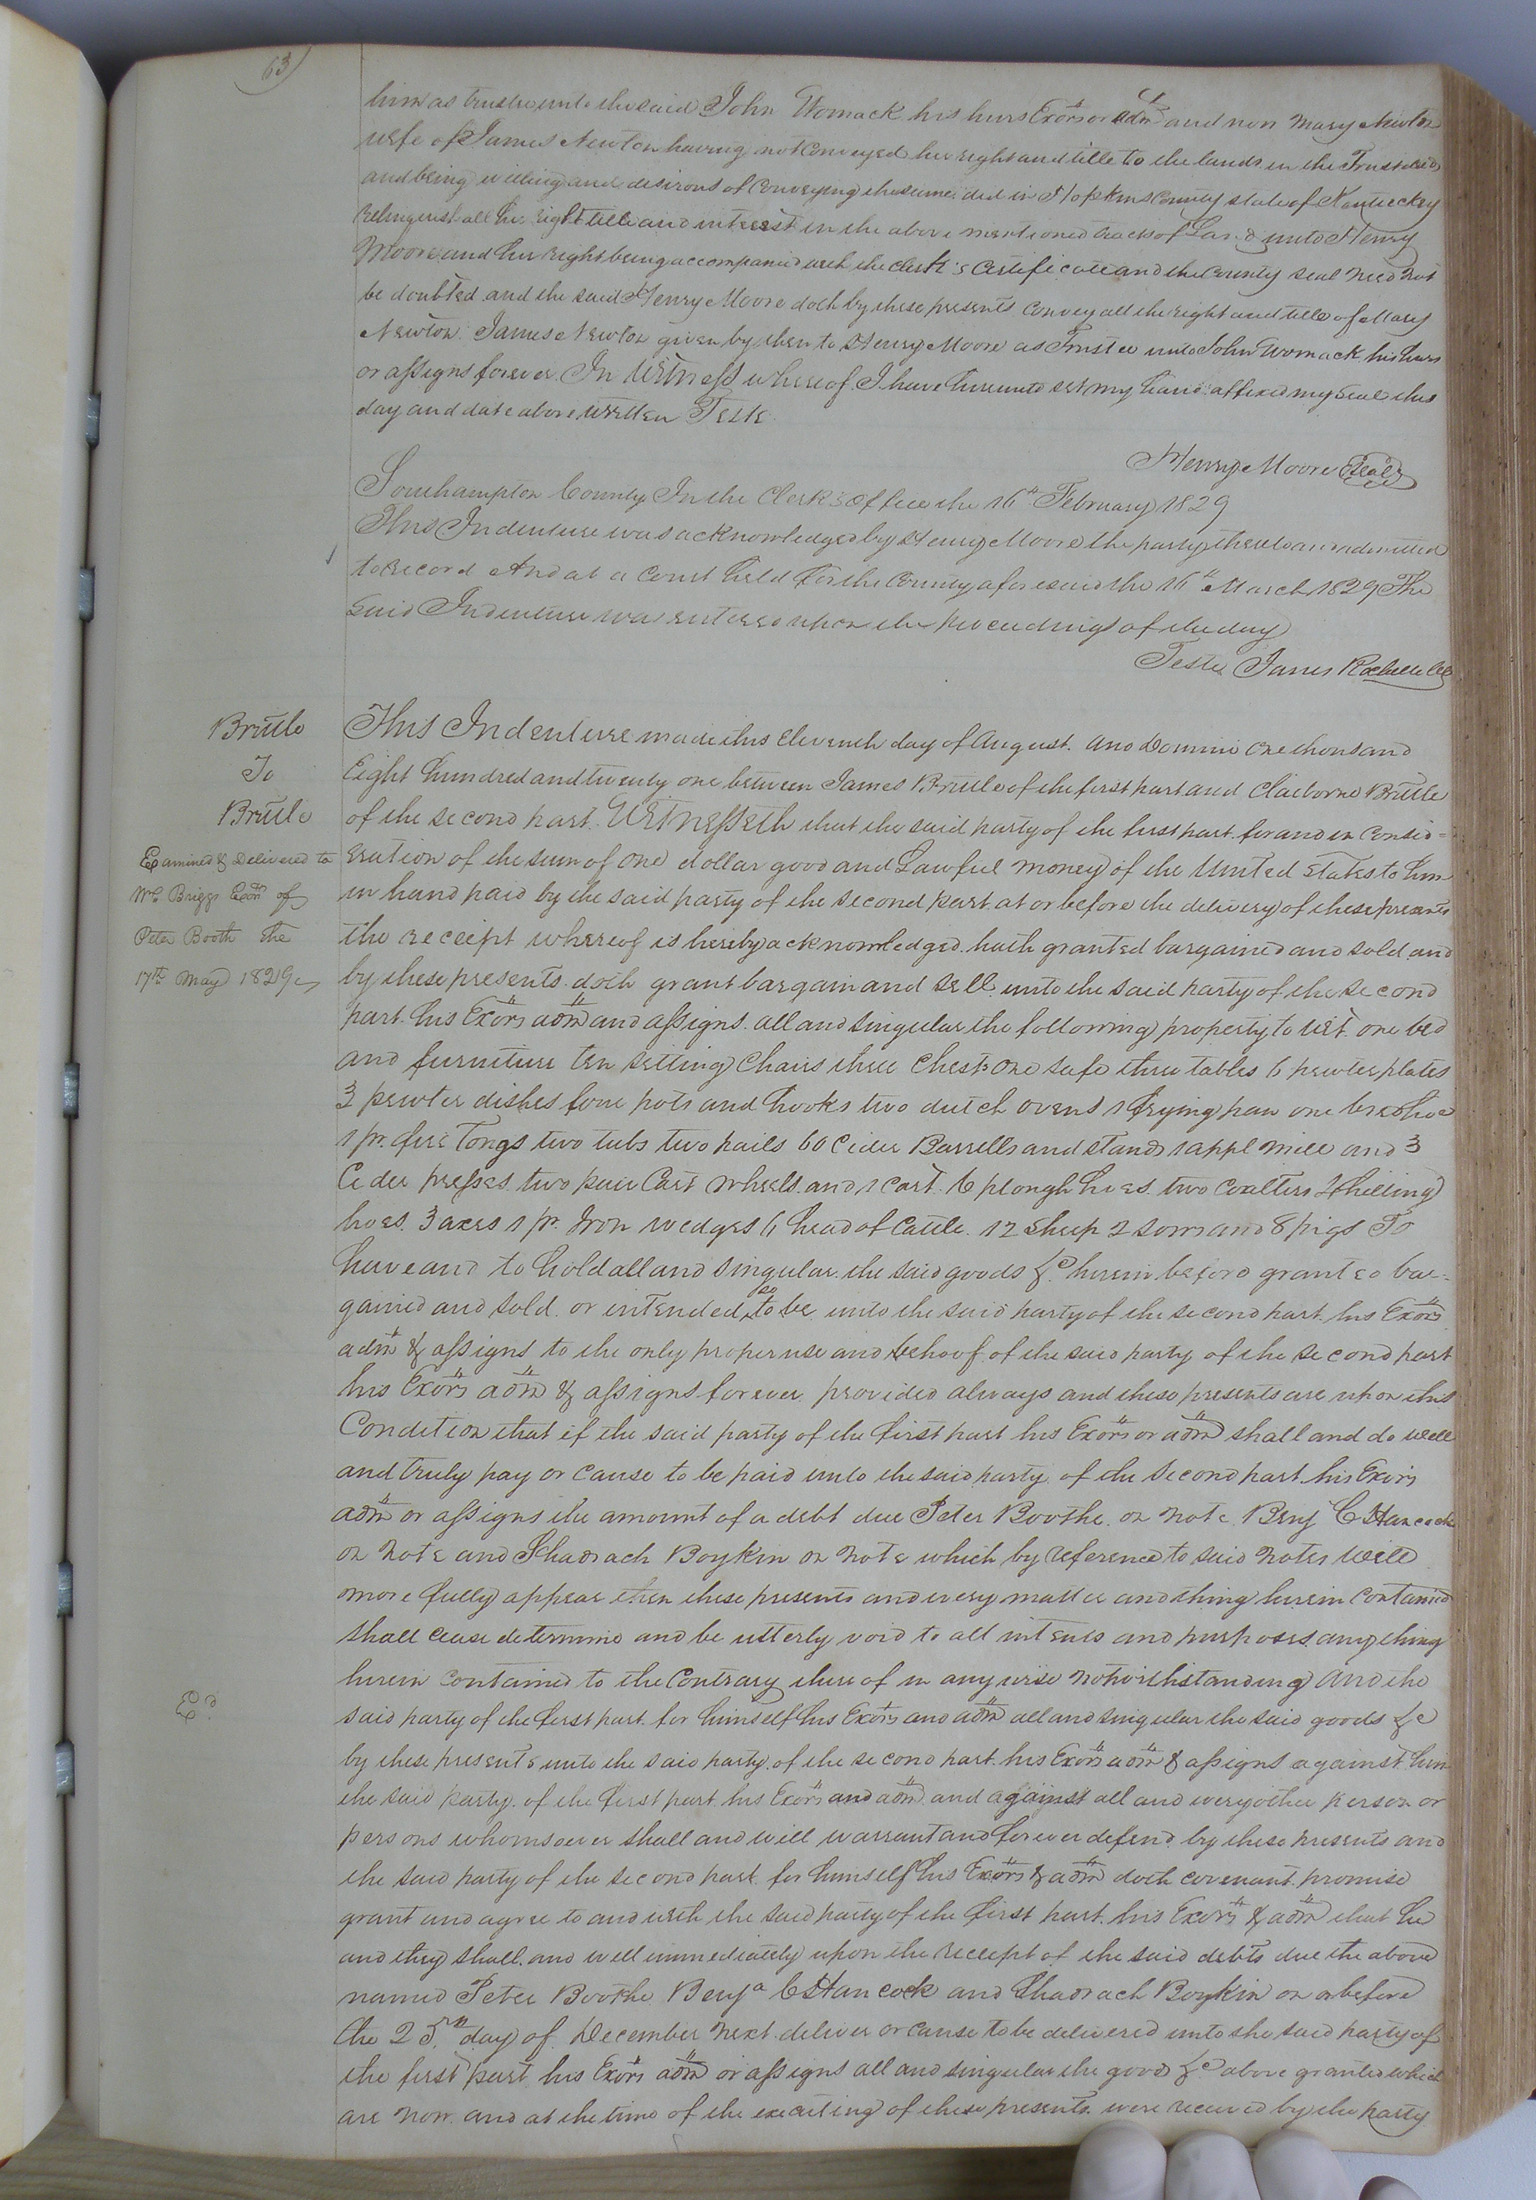 63
him as trustee unto the said John Womack his hurs Exors or adm and now Mary Newton
wife of James Newton having not Conveyed her right and title to the lands in the Trust deed
and being willing and desirous of Conveying the same did in Hopkins County state of Kentuckey
relinquish all her right title and interest in the above mentioned tracks of Land unto Henry
Moore and her right being accompanied with the clerk's Certificate and the County seal need not
be doubted and the said Henry Moore doth by these presents convey all the right and title of Mary
Newton James Newton given by them to Henry Moore as Trustee unto John Womack his hurs
or assigns forever In Witness whereof I have hereunto set my hand affixed my seal this
day and date above written Teste
Henry Moore Seal
Southampton County In the Clerk's Office the 16th February 1829
This Indenture was acknowledged by Henry Moore the party thereto and admitted
to record And at a Court held for the County aforesaid the 16th March 1829 The
Said Indenture was entered upon the proceedings of the day
Teste James Rochelle Clk
Brittle
To
Brittle
Examined & Delivered to
Wm Briggs Exor of
Peter Booth the
17th May 1829
This Indenture made this Eleventh day of August Ano Domini one thousand
Eight hundred and twenty one between James Brittle of the first part and Claiborne Brittle
of the second part Witnesseth that the said party of the first part for and in Consid=
eration of the sum of one dollar good and Lawful money of the United States to him
in hand paid by the said party of the second part at or before the delivery of these presents
the receipt whereof is hereby acknowledged hath granted bargained and sold and
by these presents doth grant bargain and sell unto the said party of the second
part his Exors adm and assigns all and singular the following property to wit one bed
and furniture ten setting Chairs three Chests one safe three tables 6 pewter plates
3 pewter dishes four pots and hooks two dutch ovens 1 frying pan one
1 pr. fire Tongs two tubs two pails 60 Cider Barrells and stands 1 appl mill and 3
Ceder presses two pair Cart wheels and 1 cart 6 plough hoes two Coalters 2 hilling
hoes 3 axes 1 pr. Iron wedges 6 head of Cattle 12 sheep 2 sows and 8 pigs To
have and to hold all and singular the said goods &c herein before granted bar=
gained and sold or intended so to be unto the said party of the second part his Exors
adm & assigns to the only proper use and behoof of the said party of the second part
his Exors adm & assigns forever provided always and these presents are upon this
Condition that if the said party of the first part his Exors or adm shall and do well
and truly pay or cause to be paid unto the said party of the second part his Exors
adm or assigns the amount of a debt due Peter Boothe on note Benj C Hancock
on note and Shadrach Boykin on note which by reference to said notes will
more fully appear then these presents and every matter and thing herein contained
shall cease determine and be utterly void to all intents and purposes any thing
herein contained to the Contrary there of in any wise notwithstanding And the
said party of the first part for himself his Exors and adm all and singular the said goods &c
by these presents unto the said party of the second part his Exors adm & assigns against him
the said party of the first part his Exors and adm and against all and every other person or
persons whomsoever shall and will warrant and forever defend by these presents and
the said party of the second part for himself his Exors & adm doth covenant promise
grant and agree to and with the said party of the first part his Exors & adm that he
and they shall and will immediately upon the receipt of the said debts due the above
named Peter Boothe Benja C Hancock and Shadrach Boykin on or before
the 25th day of December next deliver or cause to be delivered unto the said party of
the first part his Exors adm or assigns all and singular the goods &c above granted which
are now and at the time of the executing of these presents were received by the party